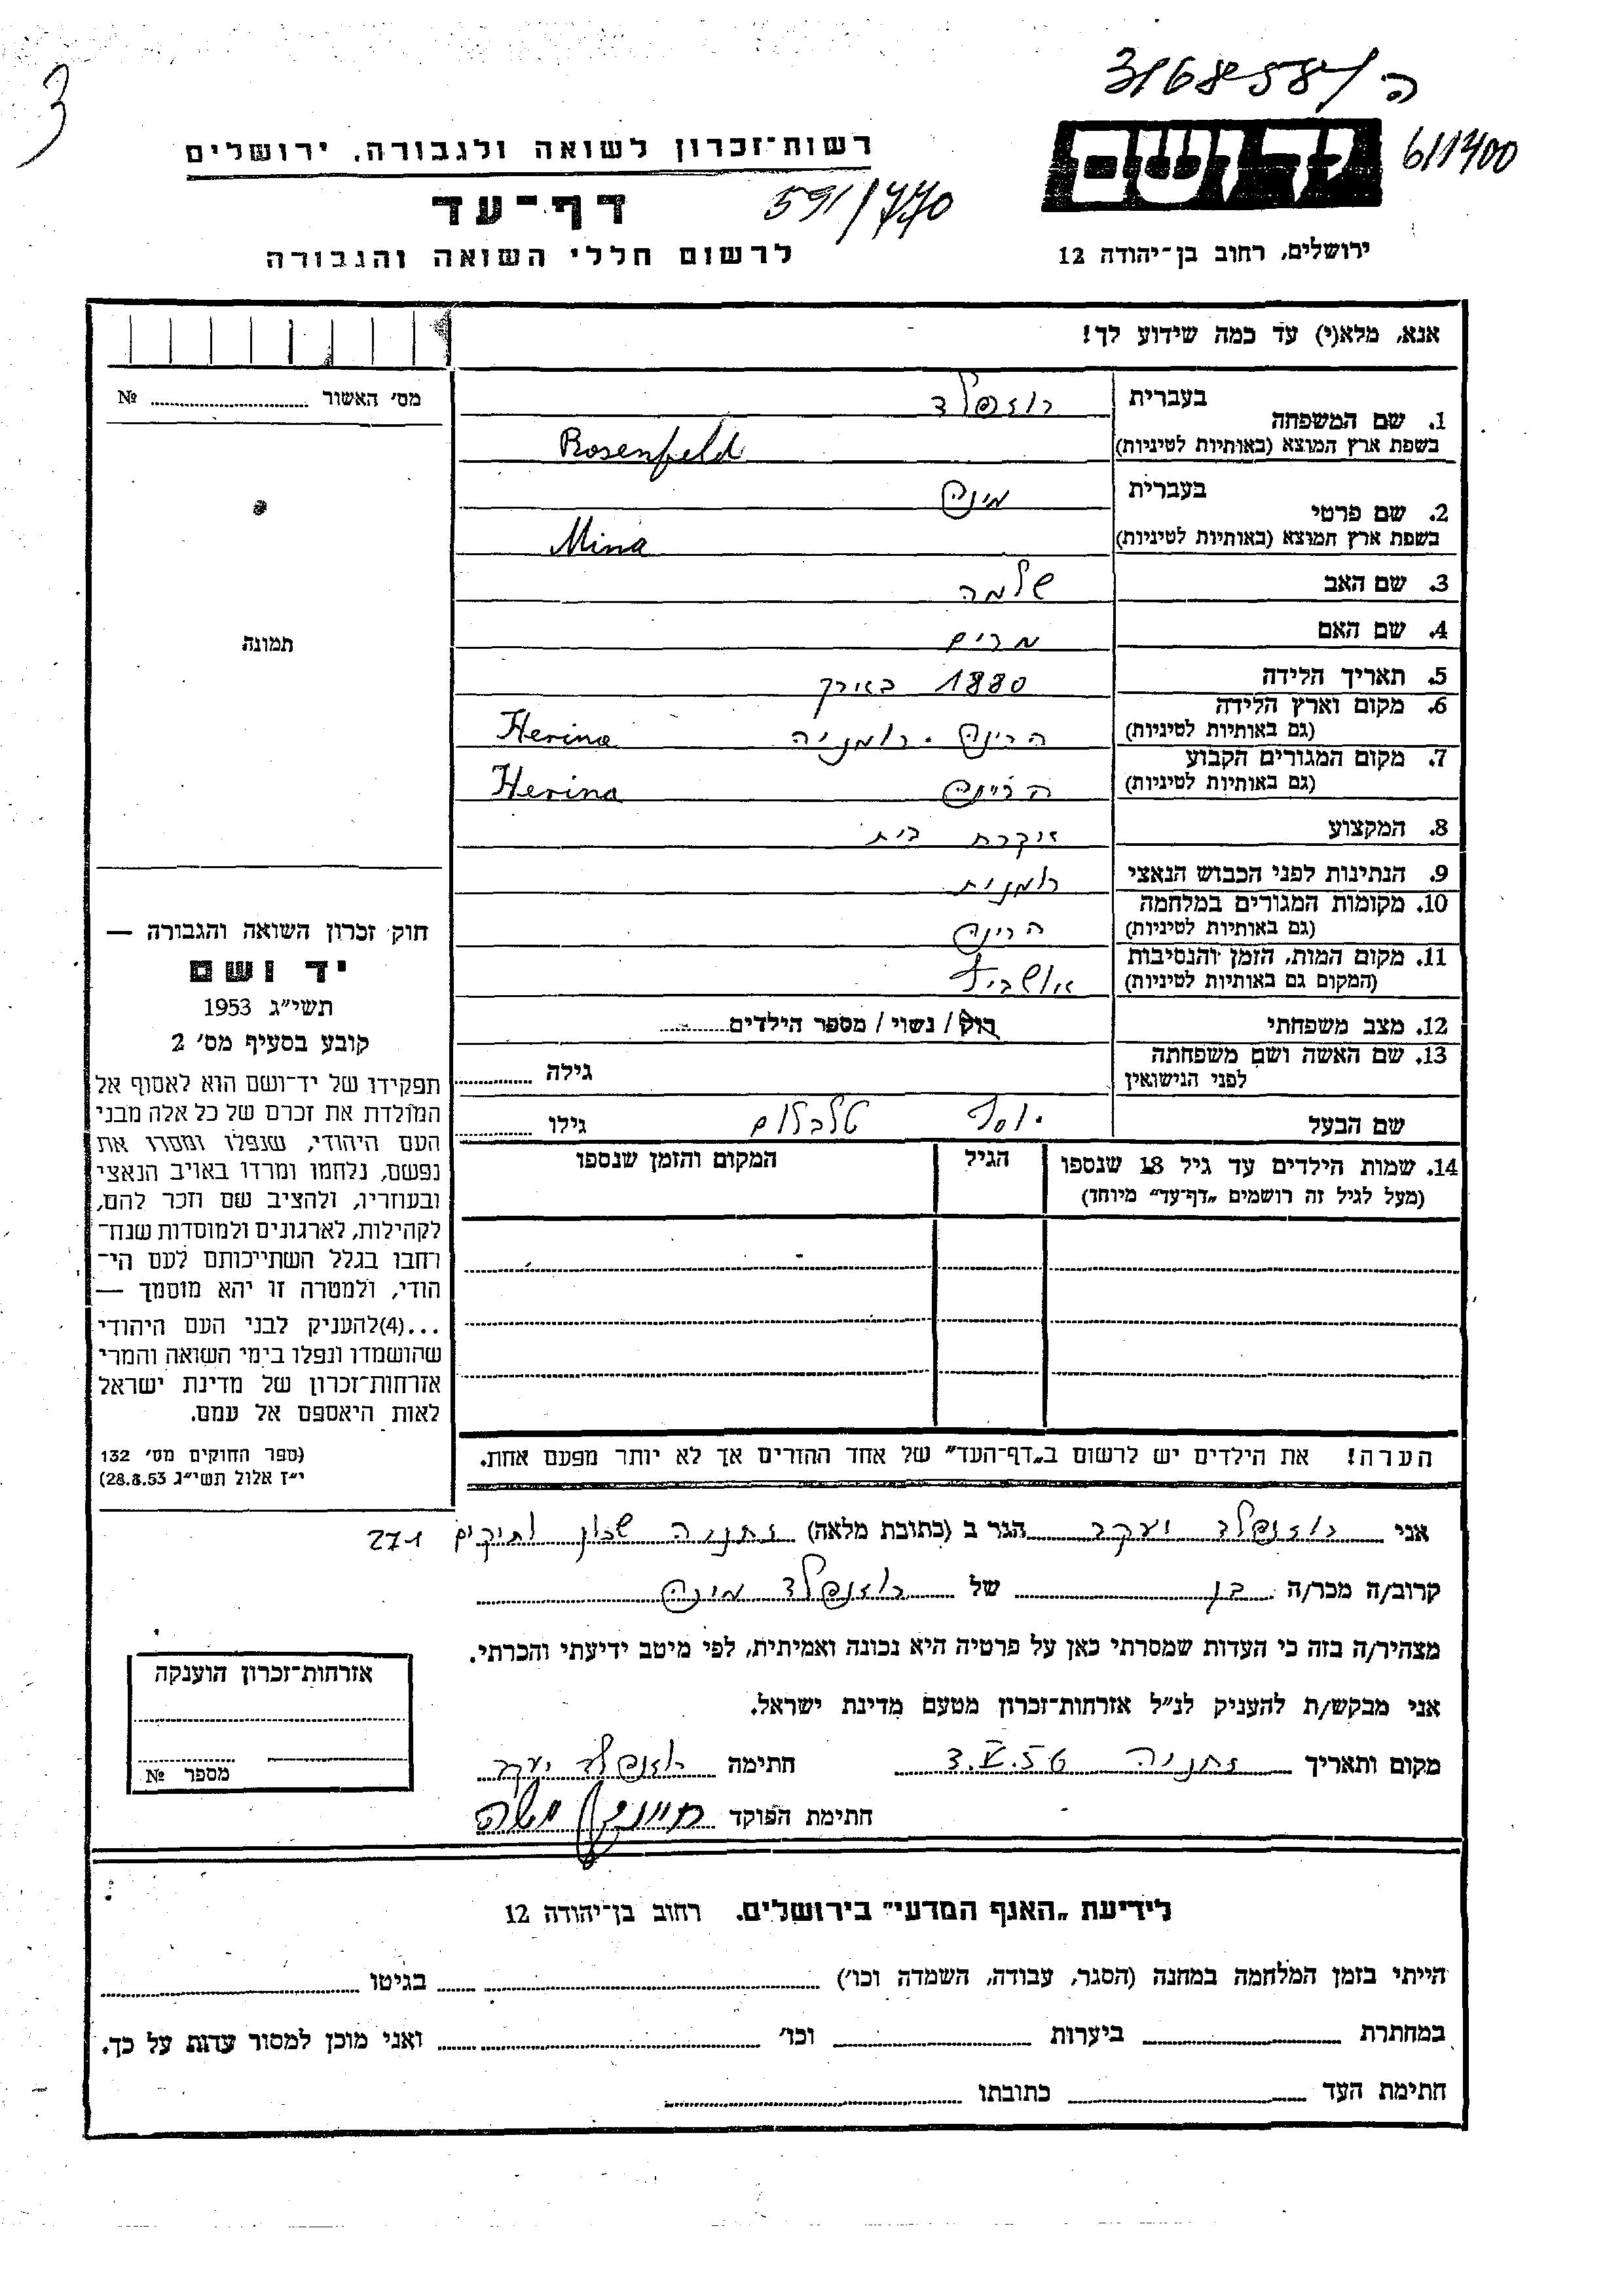 3168584/ ה
3
יד ושם
6/1400
רשות־זכרון לשואה ולגבורה, ירושלים
דף־עד
591/770
לרשום חללי השואה והגבורה
ירושלים, רחוב בן־יהודה 12
אנא, מלא(י) עד כמה שידוע לך!
מס׳ האשור № 
1. שם המשפחה בעברית רוזפלד
בשפת ארץ המוצא (באותיות לטיניות) Rosenfeld
2. שם פרטי בעברית מינה
בשפת ארץ המוצא (באותיות לטיניות) Mina
3. שם האב שלמה
תמונה
4. שם האם מרים
5. תאריך הלידה 1880 בארך
6. מקום וארץ הלידה
(גם באותיות לטיניות) הרינה. רומניה Herina
7. מקום המגורים הקבוע
(גם באותיות לטיניות) הרינה Herina
8. המקצוע עקרת בית
9. הנתינות לפני הכבוש הנאצי רומנית
10. מקומות המגורים במלחמה
(גם באותיות לטיניות) הרינה
11. מקום המות, הזמן והנסיבות
(המקום גם באותיות לטיניות) אושביץ
12. מצב משפחתי רוק / נשוי / מספר הילדים
13. שם האשה ושם משפחתה
לפני הנישואין גילה
שם הבעל יוסף גילו
14. שמות הילדים עד גיל 18 שנספו
(מעל לגיל זה רושמים „דף־עד״ מיוחד)
הגיל
המקום והזמן שנספו
חוק זכרון השואה והגבורה —
יד ושם
תשי״ג 1953
קובע בסעיף מס׳ 2
תפקידו של יד־ושם הוא לאסוף אל
המולדת את זכרם של כל אלה מבני
העם היהודי, שנפלו ומסרו את
נפשם, נלחמו ומרדו באויב הנאצי
ובעוזריו, ולהציב שם וזכר להם,
לקהילות, לארגונים ולמוסדות שנח־
רבו בגלל השתייכותם לעם הי־
הודי, ולמטרה זו יהא מוסמך —
...(4) להעניק לבני העם היהודי
שהושמדו ונפלו בימי השואה והמרי
אזרחות־זכרון של מדינת ישראל
לאות היאספם אל עמם.
(ספר החוקים מס׳ 132
י״ז אלול תשי״ג 28.8.53)
הערה! את הילדים יש לרשום ב„דף־העד״ של אחד ההורים אך לא יותר מפעם אחת.
אני רוזנפלד יעקב הגר ב (כתובת מלאה) נתניה שכון ותיקים 271
קרוב/ה מכר/ה בן של רוזנפלד מינה
מצהיר/ה בזה כי העדות שמסרתי כאן על פרטיה היא נכונה ואמיתית, לפי מיטב ידיעתי והכרתי.
אני מבקש/ת להעניק לנ״ל אזרחות־זכרון מטעם מדינת ישראל.
מקום ותאריך נתניה 3.V.56 חתימה רוזנפלד יעקב
חתימת הפוקד
אזרחות־זכרון הוענקה
מספר №
לידיעת „האגף המדעי״ בירושלים. רחוב בן־יהודה 12
הייתי בזמן המלחמה במחנה (הסגר, עבודה, השמדה וכו׳) בגיטו
במחתרת ביערות וכו׳ ואני מוכן למסור עדות על כך.
חתימת העד כתובתו